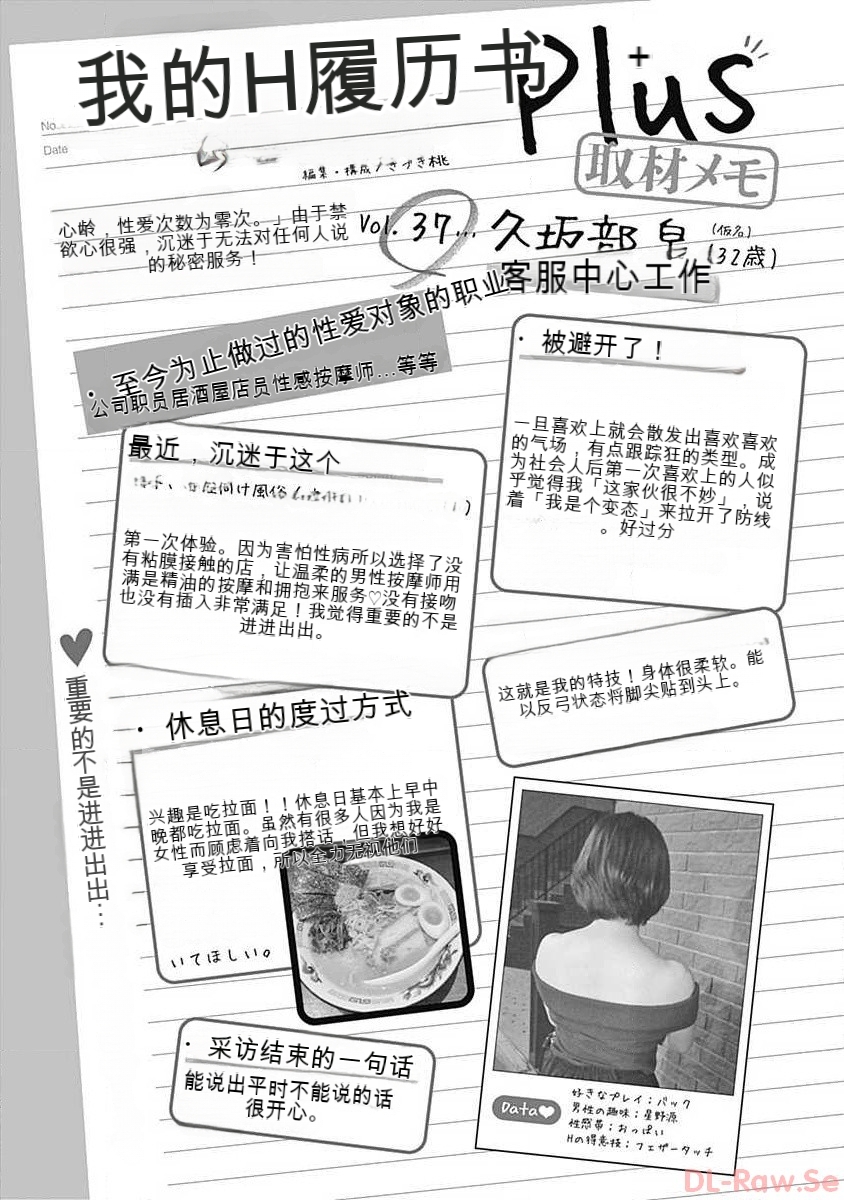 我的H履历书
Plus
No.
Date
編集・構成/さつき桃
取材メモ
心龄，性爱次数为零次。」由于禁
欲心很强，沉迷于无法对任何人说
的秘密服务！
Vol. 37... 久坊部 皀 (仮名)
(32歳)
客服中心工作
・至今为止做过的性爱对象的职业
公司职员居酒屋店员性感按摩师...等等
・被避开了！
一旦喜欢上就会散发出喜欢喜欢
的气场，有点跟踪狂的类型。成
为社会人后第一次喜欢上的人似
乎觉得我「这家伙很不妙」，说
着「我是个变态」来拉开了防线
。好过分
最近，沉迷于这个
向け風俗
第一次体验。因为害怕性病所以选择了没
有粘膜接触的店，让温柔的男性按摩师用
满是精油的按摩和拥抱来服务♡没有接吻
也没有插入非常满足！我觉得重要的不是
进进出出。
♥重要的不是进进出出…
这就是我的特技！身体很柔软。能
以反弓状态将脚尖贴到头上。
・休息日的度过方式
兴趣是吃拉面！！休息日基本上早中
晚都吃拉面。虽然有很多人因为我是
女性而顾虑着向我搭话，但我想好好
享受拉面，所以全力无视他们
いてほしい。
・采访结束的一句话
能说出平时不能说的话
很开心。
Data♥
好きなプレイ：バック
男性の趣味：星野源
性感帯：おっぱい
Hの得意技：フェザータッチ
DL-Raw.Se